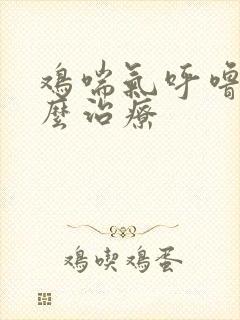 鸡喘氣呼噜
麼治療
鸡喫鸡蛋